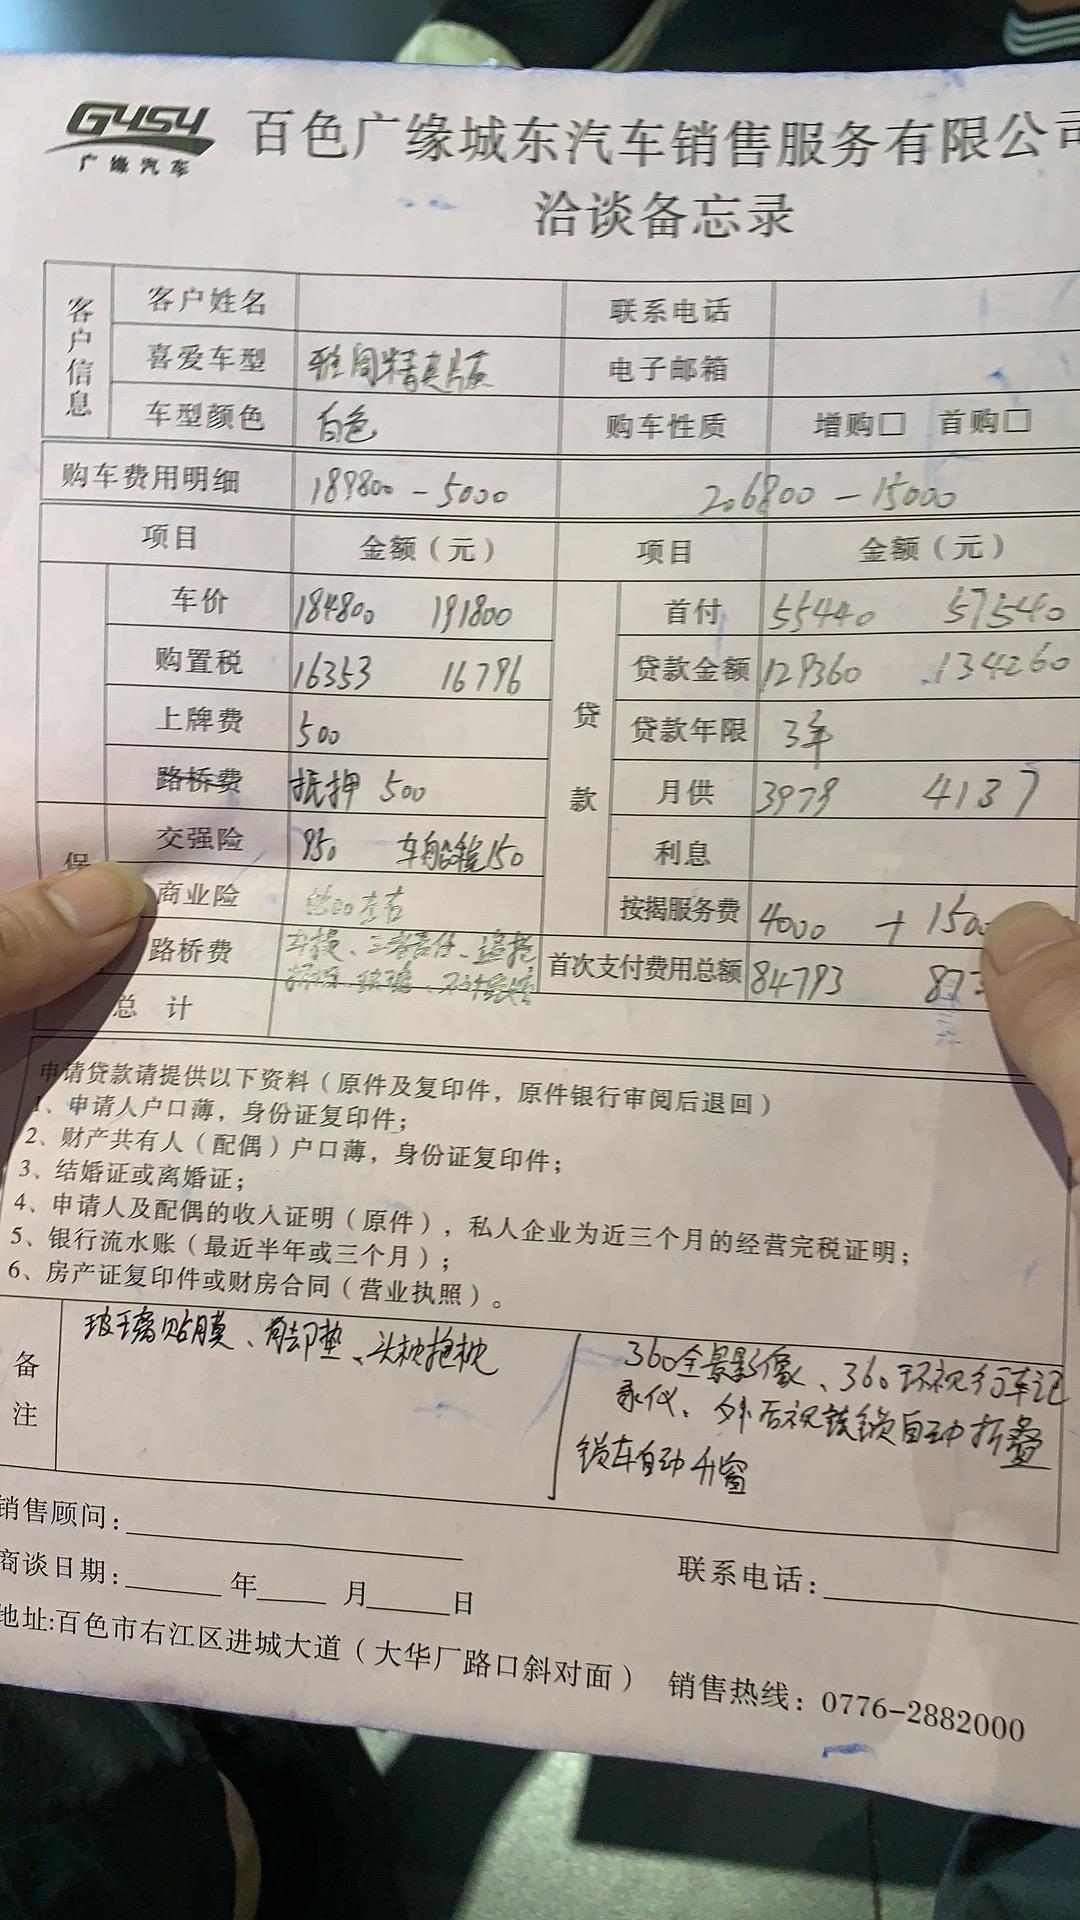 G4S4
广缘汽车
百色广缘城东汽车销售服务有限公司
洽谈备忘录
客户信息
客户姓名 联系电话
喜爱车型 雅阁精英版 电子邮箱
车型颜色 白色 购车性质 增购□ 首购□
购车费用明细 189800 - 5000 206800 - 15000
项目 金额（元） 项目 金额（元）
车价 184800 191800 首付 55440 57540
购置税 16353 16796 贷款金额 129360 134260
上牌费 500 贷款年限 3年
路桥费 抵押 500 月供 3979 4137
贷款
保
交强险 950 车船税150 利息
商业险 左右 按揭服务费 4000 + 150
路桥费 车损、三者责任、 首次支付费用总额 84793 87
玻璃、不计免赔
总计
申请贷款请提供以下资料（原件及复印件，原件银行审阅后退回）
1、申请人户口薄，身份证复印件；
2、财产共有人（配偶）户口薄，身份证复印件；
3、结婚证或离婚证；
4、申请人及配偶的收入证明（原件），私人企业为近三个月的经营完税证明；
5、银行流水账（最近半年或三个月）；
6、房产证复印件或财房合同（营业执照）。
备注
玻璃贴膜、脚垫、头枕抱枕
360全景影像、360环视行车记
录仪、外后视镜锁自动折叠
锁车自动升窗
销售顾问：
商谈日期： 年 月 日 联系电话：
地址:百色市右江区进城大道（大华厂路口斜对面） 销售热线：0776-2882000